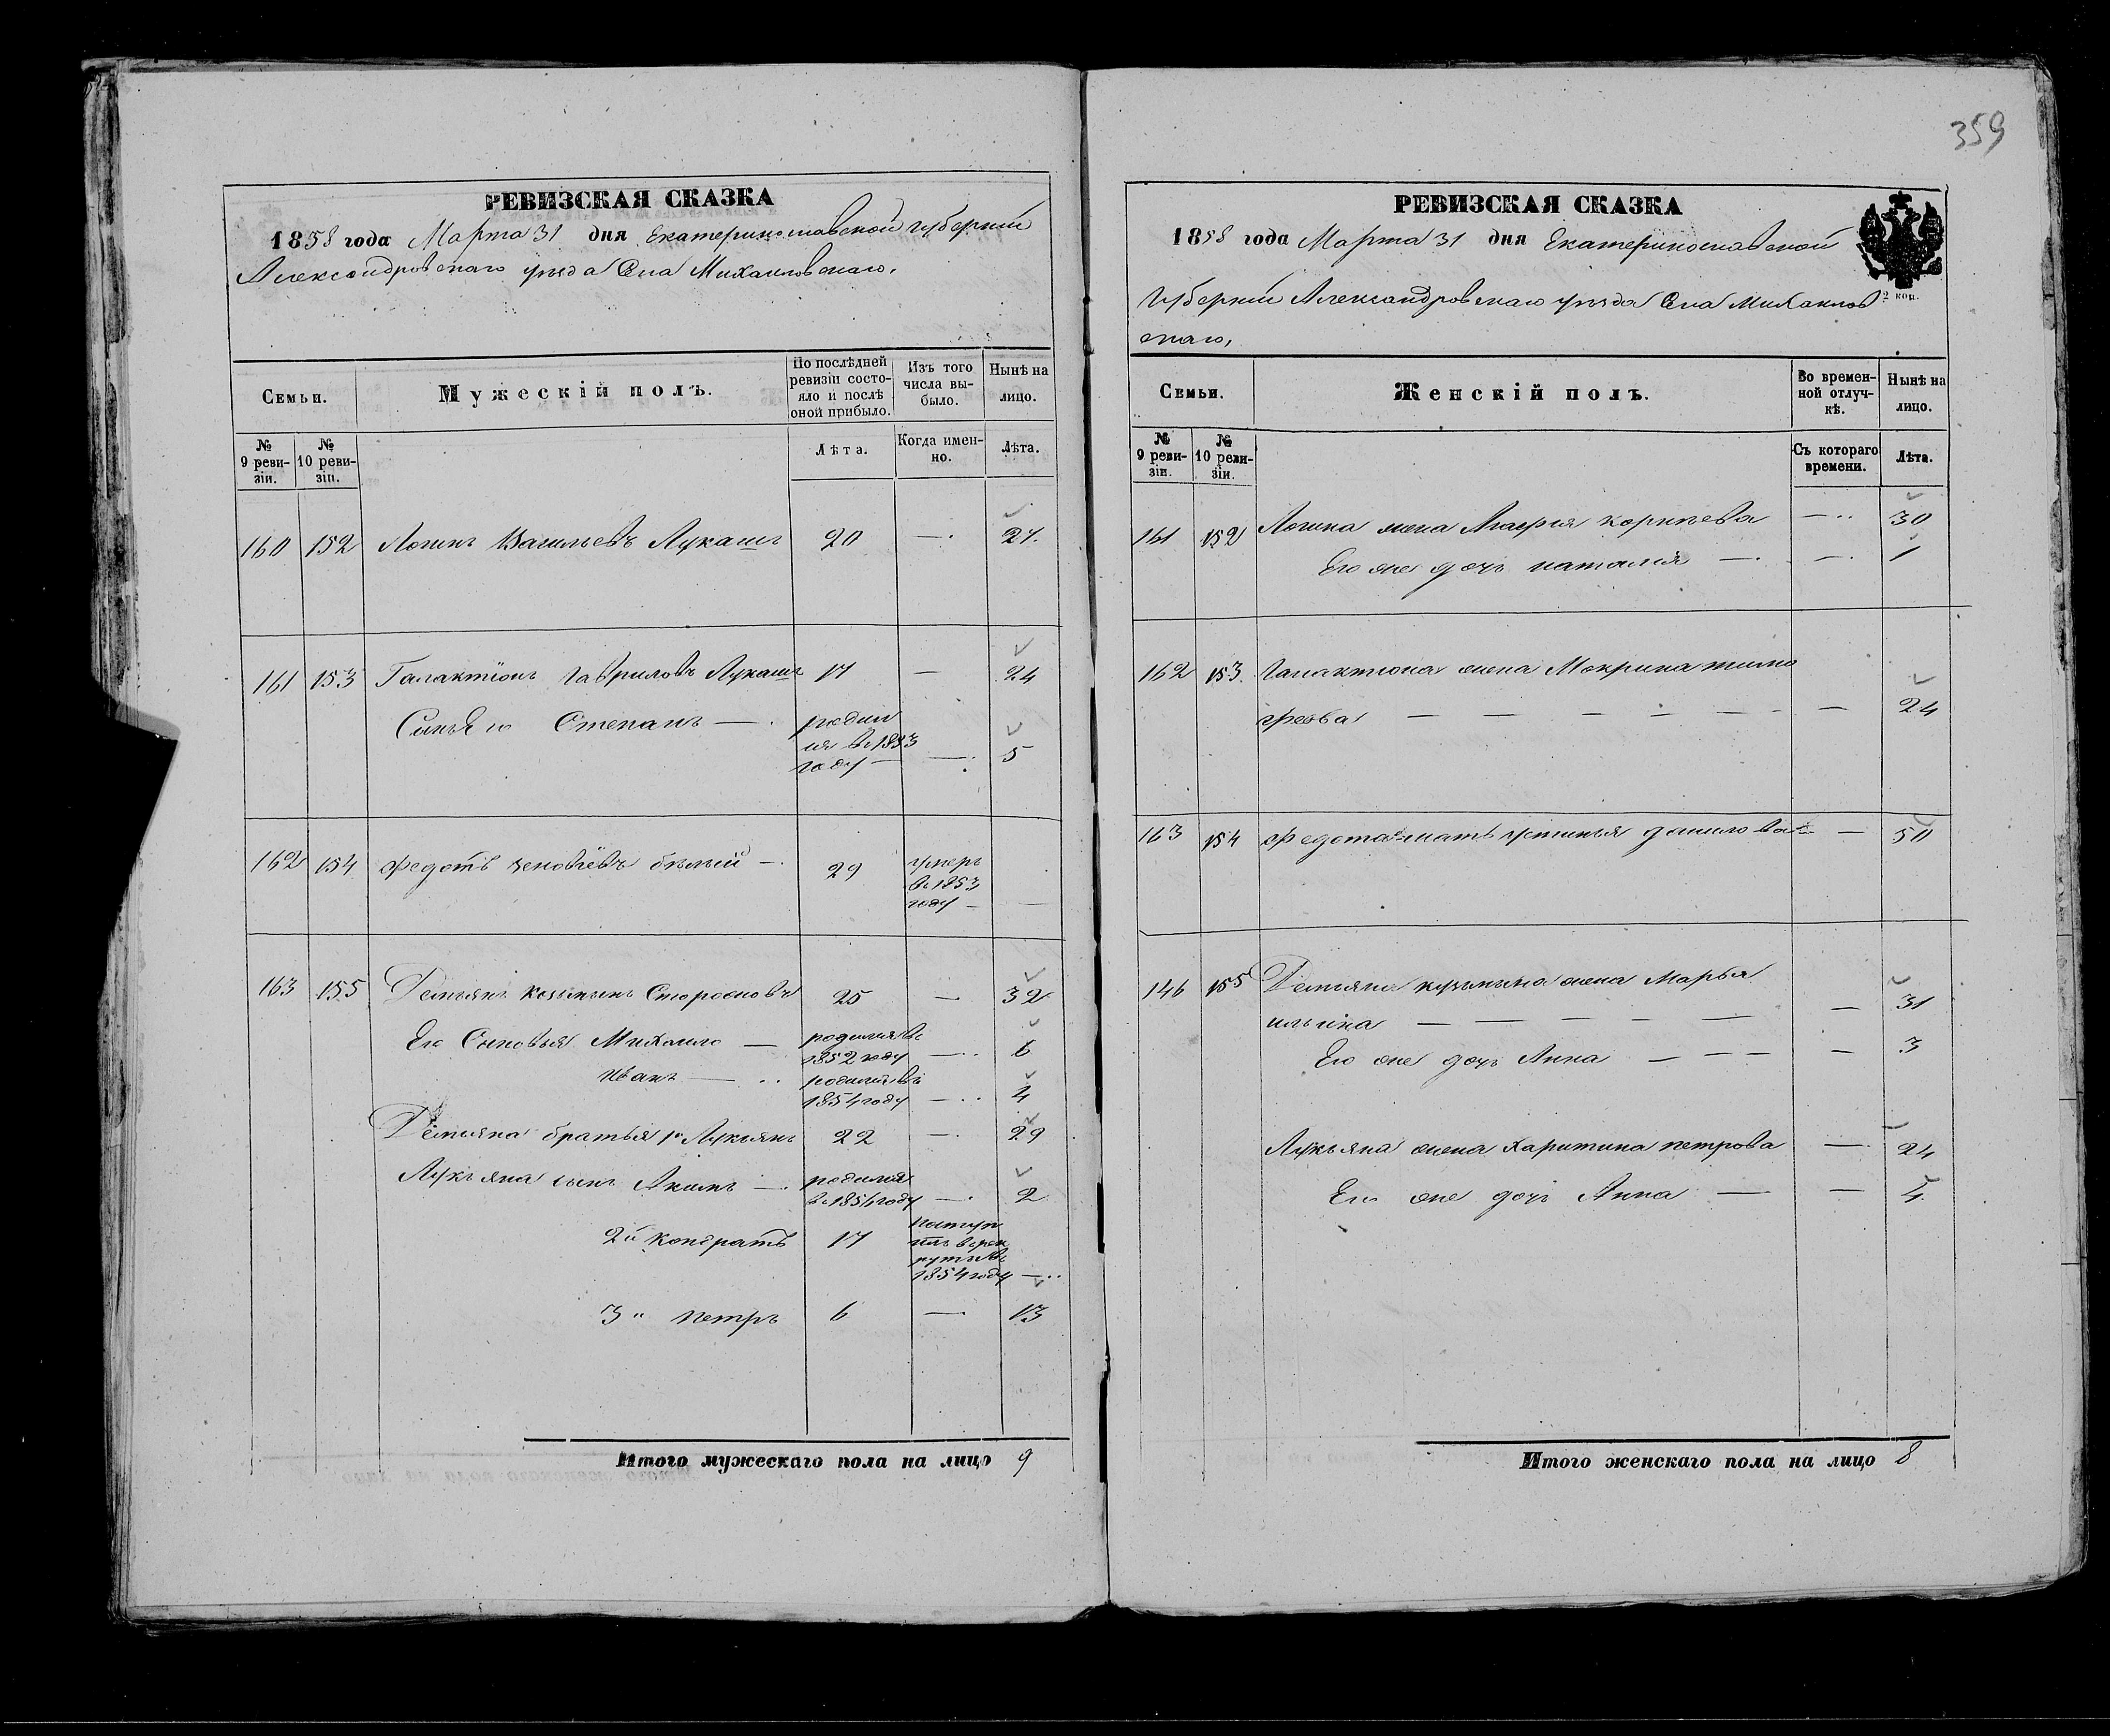 359
РЕВИЗСКАЯ СКАЗКА
1858 года Марта 31 дня Екатеринославской губернии
Александровскаго уезда Села Михайловскаго.
Семьи.
Мужескій полъ.
По послѣдней ревизіи состояло и послѣ оной прибыло.
Изъ того числа выбыло.
Нынѣ на лицо.
№ 9 ревизіи.
№ 10 ревизіи.
Лѣта.
Когда именно.
Лѣта.
160 152 Логинъ Васильевъ Лукашъ 20 — 27.
161 153 Галактіонъ Гавриловъ Лукашъ 17 — 24
Сынъ его Степанъ — родился в 1853 году — — 5
162 154 Федотъ Зеновіевъ бѣлый — 29 умеръ в 1853 году — —
163 155 Демьянъ Козьминъ 25 — 32
Его Сыновья Михаило — родился в 1852 году — 6
Иванъ — родился въ 1854 году — 4
Демьяна братья 1й Лукьянъ 22 — 29
Лукьяна сынъ Акимъ — родился в 1856 году — 2
2й Кондратъ 17 поступилъ в рекруты въ 1854 году —
3й Петръ 6 — 13
Итого мужескаго пола на лицо 9
РЕВИЗСКАЯ СКАЗКА
1858 года Марта 31 дня Екатеринославской
2 коп.
губерніи Александровскаго уезда Села Михайлов
скаго,
Семьи.
Женскій полъ.
Во временной отлучкѣ.
Нынѣ на лицо.
№ 9 ревизіи.
№ 10 ревизіи.
Съ котораго времени.
Лѣта.
161 152 Логина жена Агафія корнѣева — 30
Его же дочь наталія — — 1
162 153. Галактіона жена Мокрина тимо
феева — — — — — — — 24
163 154 Федота мать устинья данилова — — 50
146 155 Демьяна кузьмина жена Марья
ильина — — — — — — 31
Его же дочь Анна — — — — 3
Лукьяна жена Харитина петрова — 24
Его же дочь Анна — — 4.
Итого женскаго пола на лицо 8